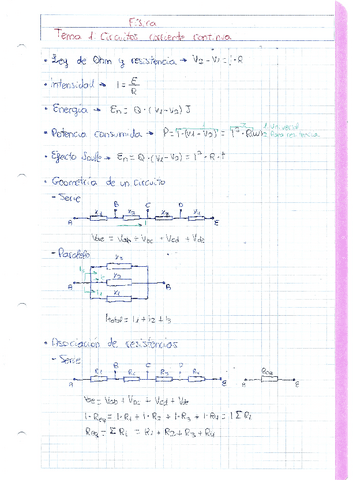 Física
Tema 1 Circuitos corriente continua
• Ley de Ohm y resistencia → V2 - V1 = I·R
• Intensidad → I = E/R
• Energía → En = Q·(V1-V2) J
• Potencia consumida → P = I·(V1-V2) = I²·R(W)
para resistencia
• Efecto Joule → En = Q·(V1-V2) = I²·R·t
• Geometría de un circuito
- Serie
A B C D E
Vae = Vab + Vbc + Vcd + Vde
- Paralelo
A B
Itotal = i1 + i2 + i3
• Asociación de resistencias
- Serie
A R1 B R2 C R3 R4 E A Req E
Vae = Vab + Vbc + Vcd + Vde
I·Req = I·R1 + I·R2 + I·R3 + I·R4 = I ΣRi
Req = ΣRi = R1 + R2 + R3 + R4